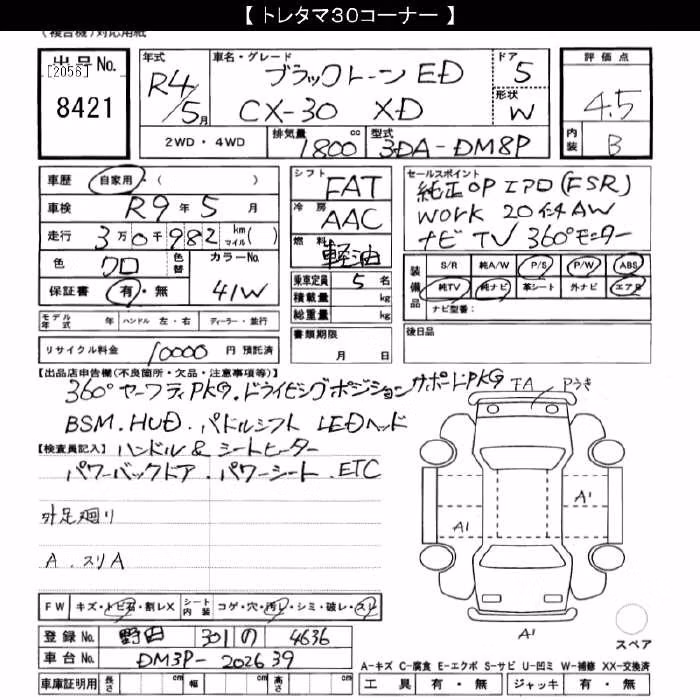 【 トレタマ30コーナー 】
(複合機)対応用紙
出品No. [2056] 8421
年式 R4/5月
車名・グレード ブラックトーンED CX-30 XD
ドア 5
形状 W
評価点 4.5
内装 B
2WD・4WD
排気量 1800 cc
型式 3DA-DM8P
車歴 自家用・( )
車検 R9年5月
走行 3万0千982 km マイル( )
色 クロ 色替 カラーNo. 41W
保証書 有・無
モデル年式 年 ハンドル 左・右 ディーラー・並行
リサイクル料金 10000 円 預託済
シフト FAT
冷房 AAC
燃料 軽油
乗車定員 5 名
積載量 kg
総重量 kg
書類期限 月 日
セールスポイント
純正OP エアロ(FSR)
WORK 20インチAW
ナビ TV 360°モニター
装備品 S/R 純A/W P/S P/W ABS
純TV 純ナビ 革シート 外ナビ エアB
ナビ型番:
後日品
【出品店申告欄(不良箇所・欠品・注意事項等)】
360°セーフティPKG.ドライビングポジションサポートPKG
BSM.HUD.パドルシフト LEDヘッド
【検査員記入】ハンドル&シートヒーター
パワーバックドア.パワーシート.ETC
外足廻り
A.スリA
TA Pうき
A1
A1
A1
スペア
FW キズ・トビ石・割レX シート内装 コゲ・穴・汚レ・シミ・破レ・スレ
登録No. 野田 301 の 4636
車台No. DM3P-202639
A-キズ C-腐食 E-エクボ S-サビ U-凹ミ W-補修 XX-交換済
車庫証明用 長さ cm 幅 cm 高さ cm 工具 有・無 ジャッキ 有・無